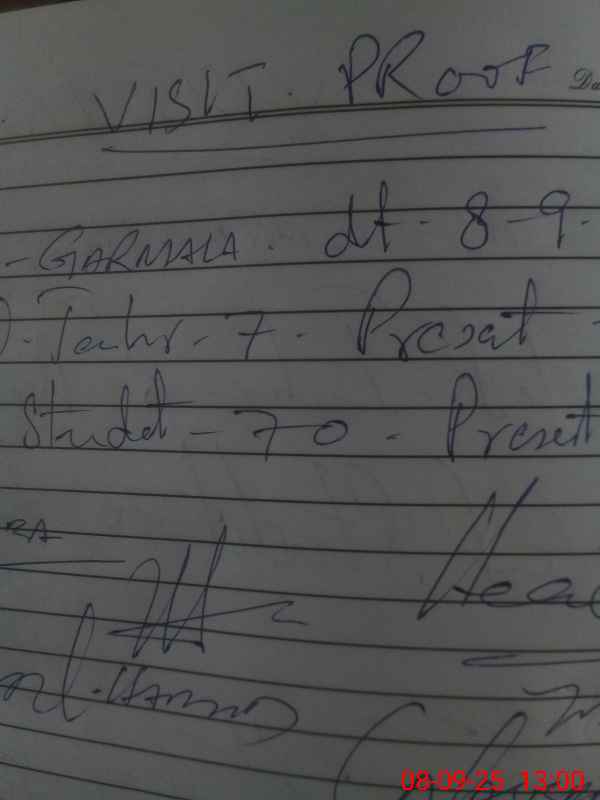 VISIT. PROOF
- GARMALA. dt - 8-9.
Teahr - 7. Preset -
Studet - 70 - Preset
RA
Hea
08-09-25 13:00